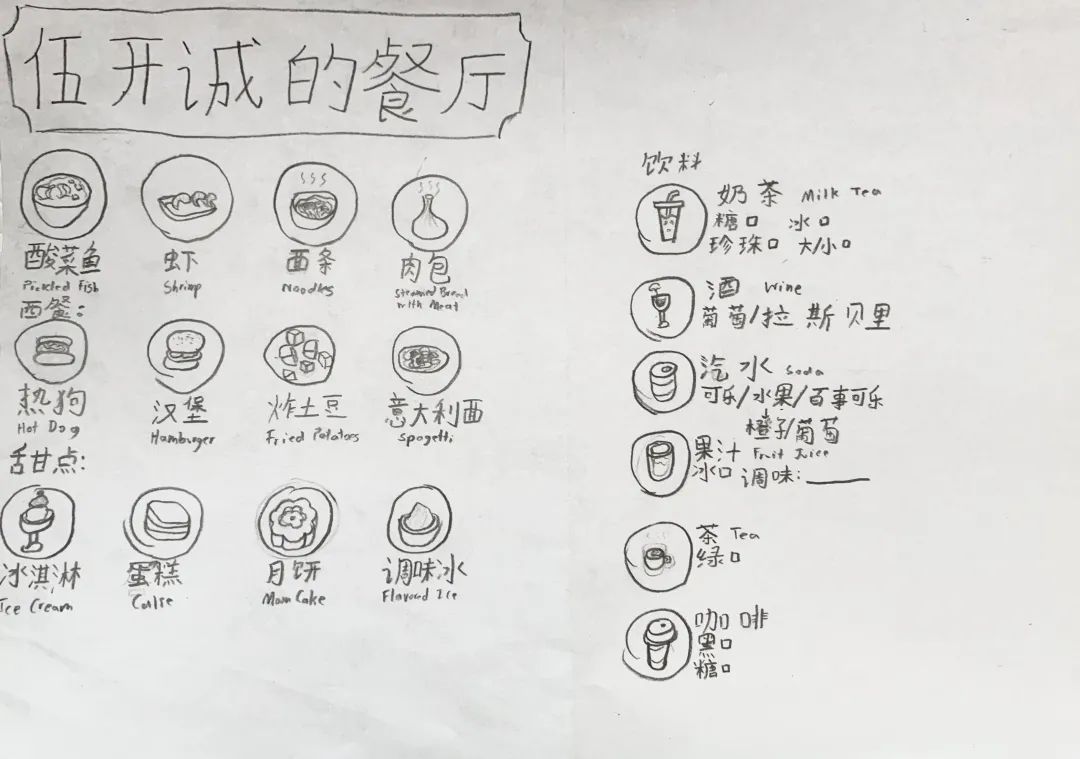 伍开诚的餐厅
酸菜鱼 虾 面条 肉包
Pickled Fish Shrimp Noodles Steamed Bread
with Meat
西餐:
热狗 汉堡 炸土豆 意大利面
Hot Dog Hamburger Fried Potatoes Spagetti
甜点:
冰淇淋 蛋糕 月饼 调味冰
Ice Cream Moon Cake Flavored Ice
饮料
奶茶 Milk Tea
糖口 冰口
珍珠口 大/小口
酒 Wine
葡萄/拉斯贝里
汽水 Soda
可乐/水果/百事可乐
橙子/葡萄
果汁 Fruit Juice
冰口 调味:
茶 Tea
绿口
咖啡
黑口
糖口